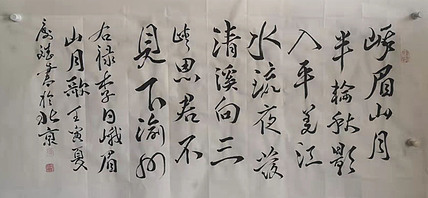 峨眉山月
半輪秋影
入平羌江
水流夜發
清溪向三
峽思君不
見下渝州
右録李白峨眉
山月歌壬寅夏
書於北京